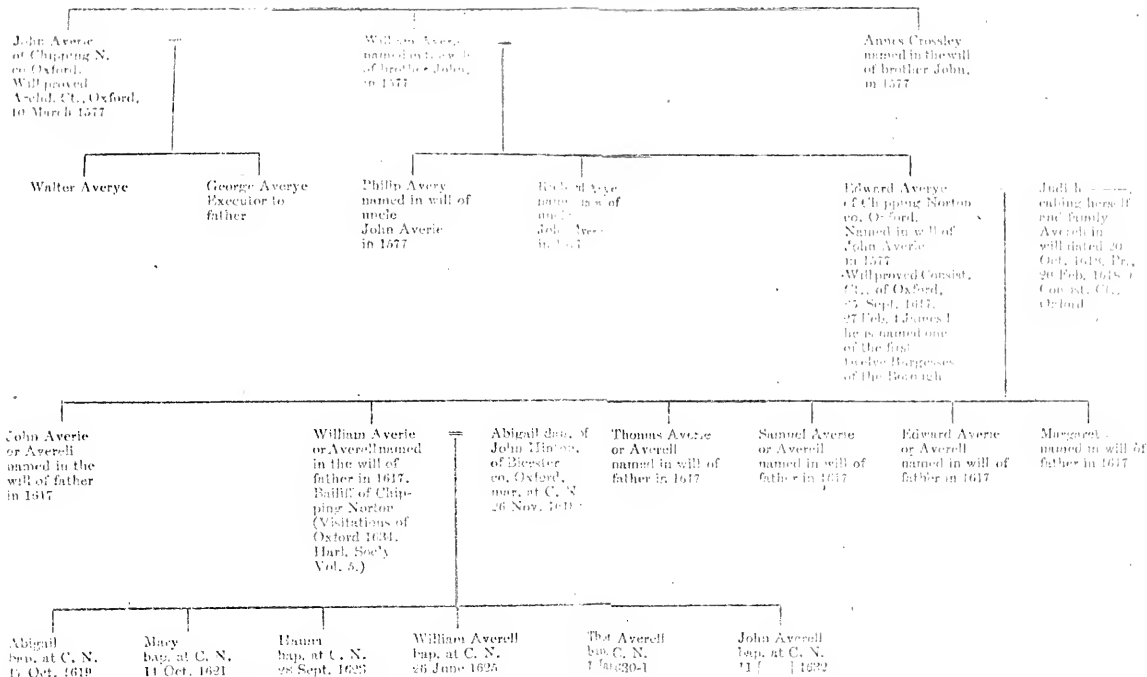 John Averie
of Chipping N.
co Oxford.
Will proved
Archd. Ct., Oxford,
10 March 1577
William Avery
named in
of brother John,
in 1577
Annes Crossley
named in the will
of brother John,
in 1577
Walter Averye
George Averye
Executor to
father
Philip Avery
named in will of
uncle
John Averie
in 1577
Richard
of
uncle
John
in
Edward Averye
of Chipping Norton
co. Oxford.
Named in will of
John Averie
in 1577
Will proved Consist.
Ct., of Oxford,
25 Sept. 1617.
27 Feb. 4 James I
he is named one
of the first
twelve Burgesses
of the Borough
calling herself
and family
Averell in
will dated 20
Oct. 1618. Pr.,
20 Feb. 1618
Consist. Ct.,
Oxford
John Averie
or Averell
named in the
will of father
in 1617
William Averie
or Averell named
in the will of
father in 1617.
Bailiff of Chip-
ping Norton
(Visitations of
Oxford 1634.
Harl. Soc'y
Vol. 5.)
Abigail dau. of
John Hinton,
of Bicester
co. Oxford,
mar. at C. N.
26 Nov.
Thomas Averie
or Averell
named in will of
father in 1617
Samuel Averie
or Averell
named in will of
father in 1617
Edward Averie
or Averell
named in will of
father in 1617
Margaret
named in will of
father in 1617
Abigail
bap. at C. N.
Oct. 1619
Mary
bap. at C. N.
11 Oct. 1621
Hanna
bap. at C. N.
28 Sept. 1623
William Averell
bap. at C. N.
26 June 1625
Averell
bap. C. N.
John Averell
bap. at C. N.
1632